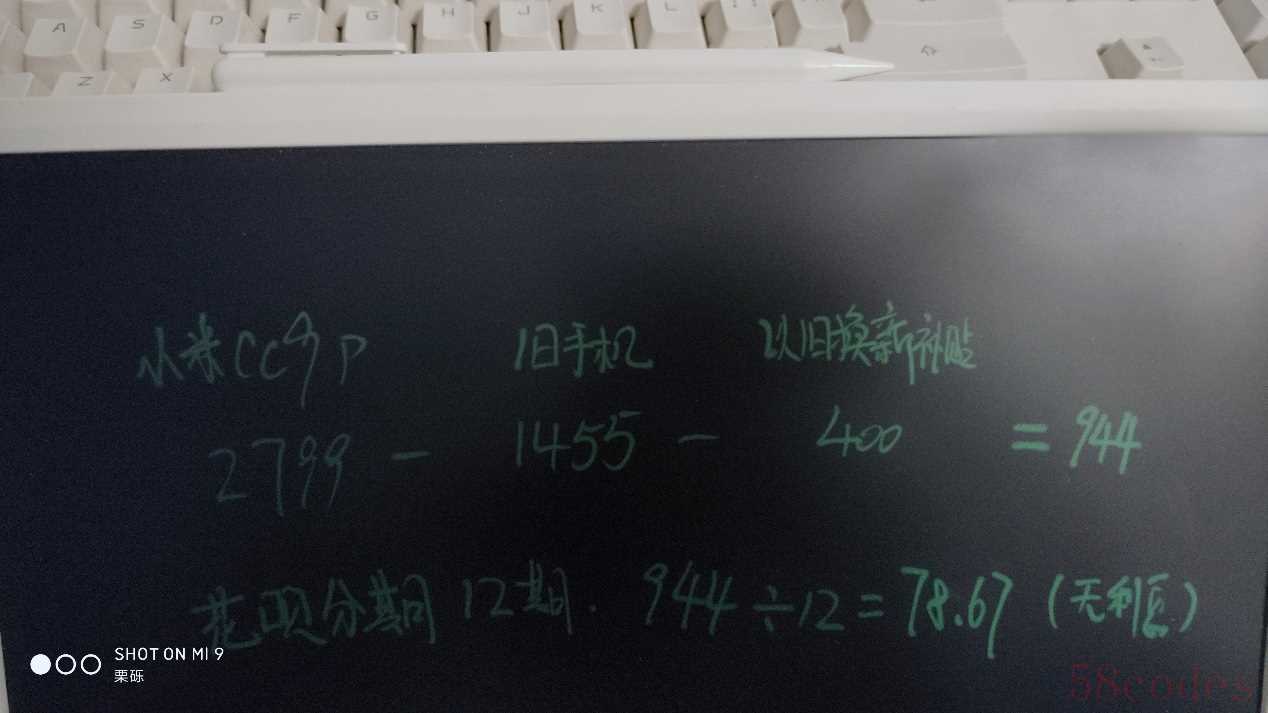 A S D F G H J K L
Z X
小米CC9P 旧手机 以旧换新补贴
2799 - 1455 - 400 = 944
花呗分期 12期. 944÷12=78.67 (无利息)
SHOT ON MI 9
栗砾
58codes